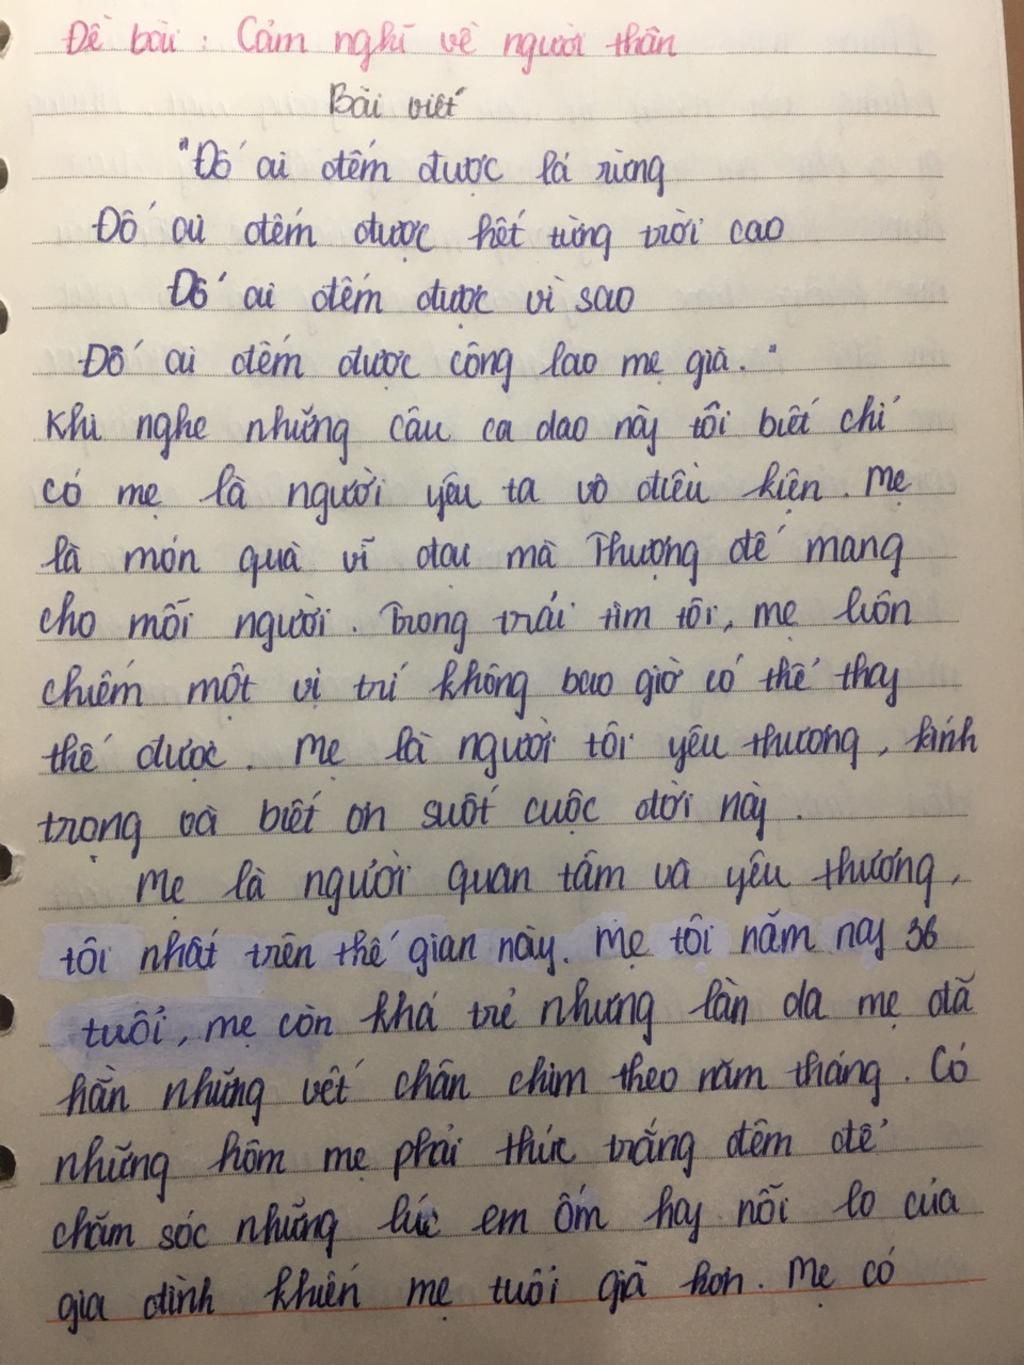 Đề bài : Cảm nghĩ về người thân
Bài viết
"Đố ai đếm được lá rừng
Đố ai đếm được hết từng trời cao
Đố ai đếm được vì sao
Đố ai đếm được công lao mẹ già."
Khi nghe những câu ca dao này tôi biết chỉ
có mẹ là người yêu ta vô điều kiện. Mẹ
là món quà vĩ đại mà Thượng đế mang
cho mỗi người. Trong trái tim tôi, mẹ luôn
chiếm một vị trí không bao giờ có thể thay
thế được. Mẹ là người tôi yêu thương, kính
trọng và biết ơn suốt cuộc đời này.
Mẹ là người quan tâm và yêu thương,
tôi nhất trên thế gian này. Mẹ tôi năm nay 36
tuổi, mẹ còn khá trẻ nhưng làn da mẹ đã
hằn những vết chân chim theo năm tháng. Có
những hôm mẹ phải thức trắng đêm để
chăm sóc những lúc em ốm hay nỗi lo của
gia đình khiến mẹ tuôi già hơn. Mẹ có